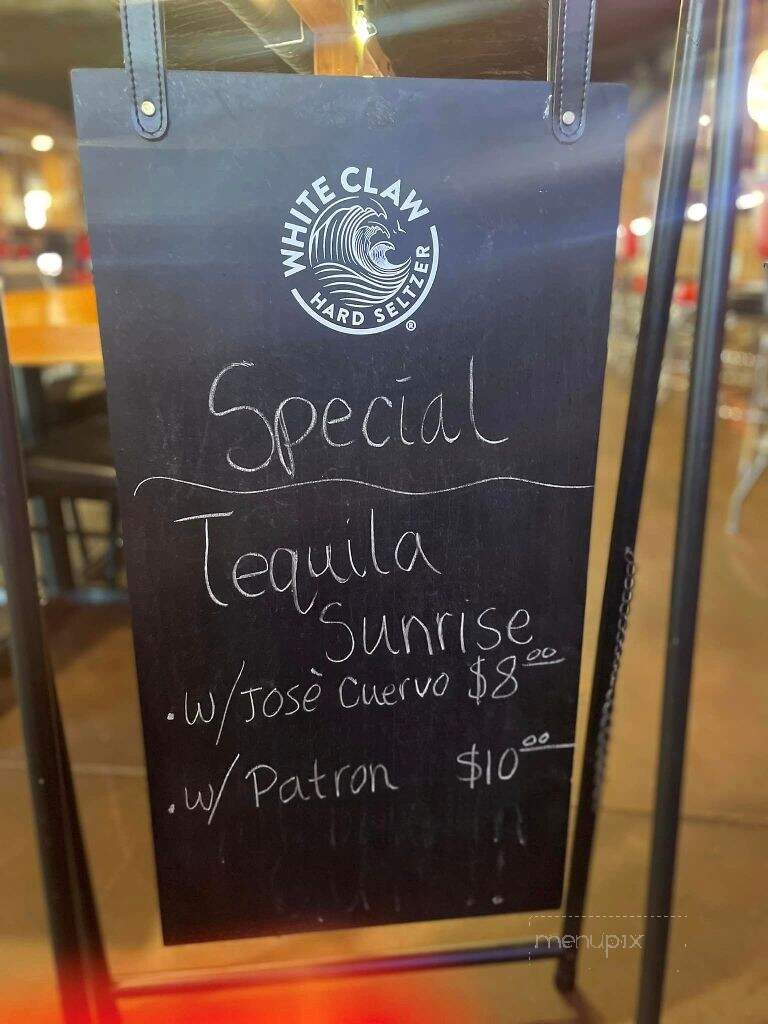 WHITE CLAW
HARD SELTZER
®
Special
Tequila
Sunrise
. w/ Josè Cuervo $8 00
. w/ Patron $10 00
menupix